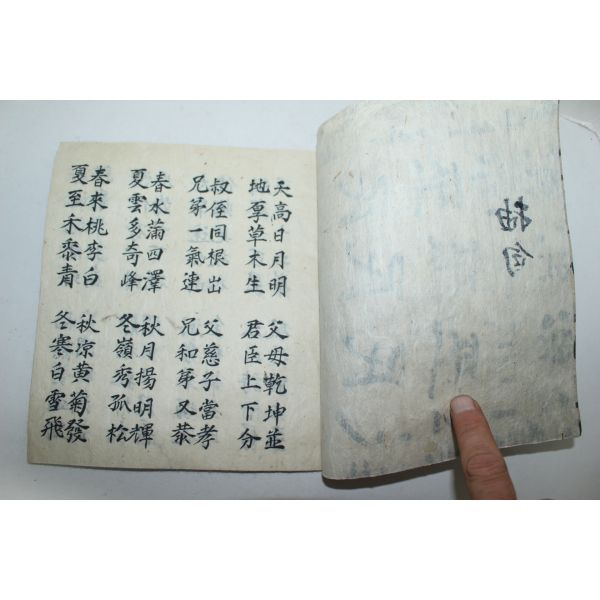 抽句
天高日月明
地厚草木生
父母乾坤並
君臣上下分
叔侄同根出
兄苐一氣連
父慈子當孝
兄和苐又恭
春水滿四澤
夏雲多奇峰
秋月揚明輝
冬嶺秀孤松
春來桃李白
夏至禾黍青
秋凉黄菊發
冬寒白雪飛